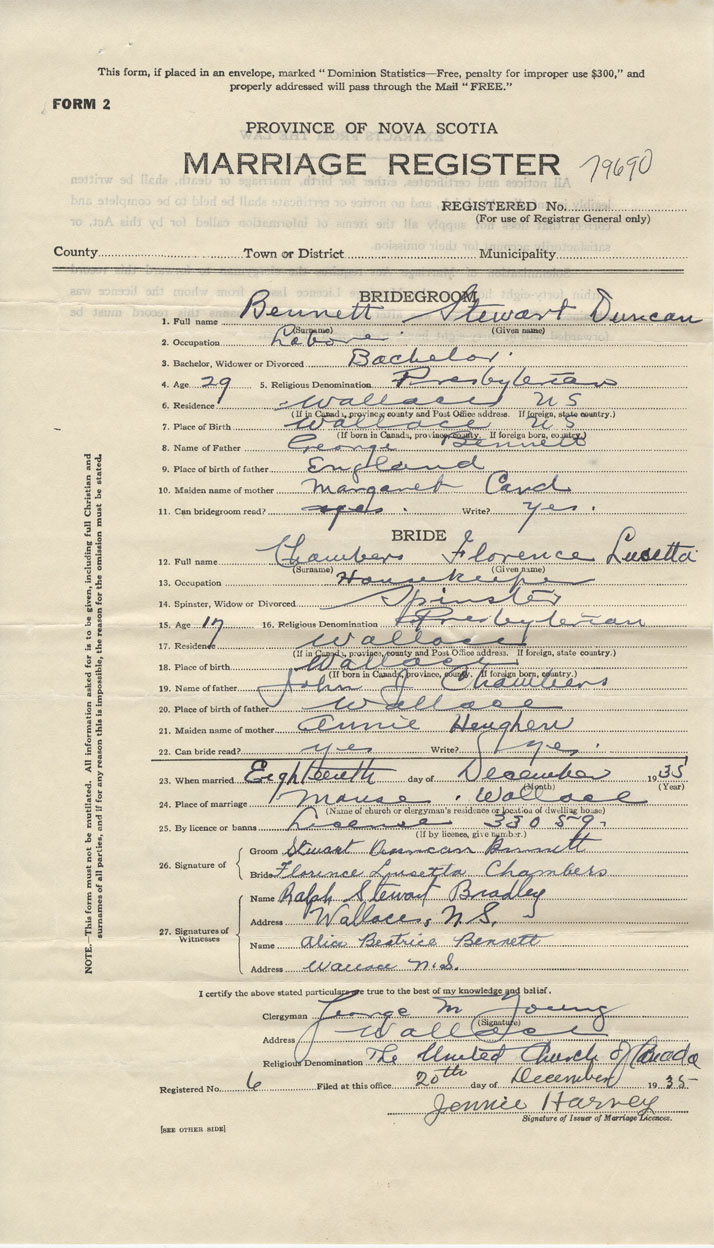 This form, if placed in an envelope, marked " Dominion Statistics—Free, penalty for improper use $300," and
properly addressed will pass through the Mail " FREE."
FORM 2
PROVINCE OF NOVA SCOTIA
MARRIAGE REGISTER 79690
REGISTERED No.
(For use of Registrar General only)
County Town or District Municipality
BRIDEGROOM
1. Full name Bennett Stewart Duncan
(Surname) (Given name)
2. Occupation Laborer
3. Bachelor, Widower or Divorced Bachelor
4. Age 29 5. Religious Denomination Presbyterian
6. Residence Wallace NS
(If in Canada, province, county and Post Office address. If foreign, state country.)
7. Place of Birth Wallace NS
(If born in Canada, province, county. If foreign born, country.)
8. Name of Father George Bennett
9. Place of birth of father England
10. Maiden name of mother Margaret Card
11. Can bridegroom read? yes. Write? yes.
BRIDE
12. Full name Chambers Florence Lusetta
(Surname) (Given name)
13. Occupation Housekeeper
14. Spinster, Widow or Divorced Spinster
15. Age 17 16. Religious Denomination Presbyterian
17. Residence Wallace
(If in Canada, province, county and Post Office address. If foreign, state country.)
18. Place of birth Wallace
(If born in Canada, province, county. If foreign born, country.)
19. Name of father John J Chambers
20. Place of birth of father Wallace
21. Maiden name of mother Annie Heughen
22. Can bride read? yes Write? yes.
23. When married Eighteenth day of December 1935
(Month) (Year)
24. Place of marriage Manse. Wallace
(Name of church or clergyman's residence or location of dwelling house)
25. By licence or banns License 33059.
(If by licence, give number.)
26. Signature of
Groom Stewart Duncan Bennett
Bride Florence Lusetta Chambers
27. Signatures of Witnesses
Name Ralph Stewart Bradley
Address Wallace, N.S.
Name Alice Beatrice Bennett
Address Wallace N.S.
I certify the above stated particulars are true to the best of my knowledge and belief.
Clergyman George M Young
(Signature)
Address Wallace
Religious Denomination The United Church of Canada
Registered No. 6 Filed at this office 20th day of December 1935
Jennie Harvey
Signature of Issuer of Marriage Licences.
[SEE OTHER SIDE]
NOTE.—This form must not be mutilated. All information asked for is to be given, including full Christian and
surnames of all parties, and if for any reason this is impossible, the reason for the omission must be stated.